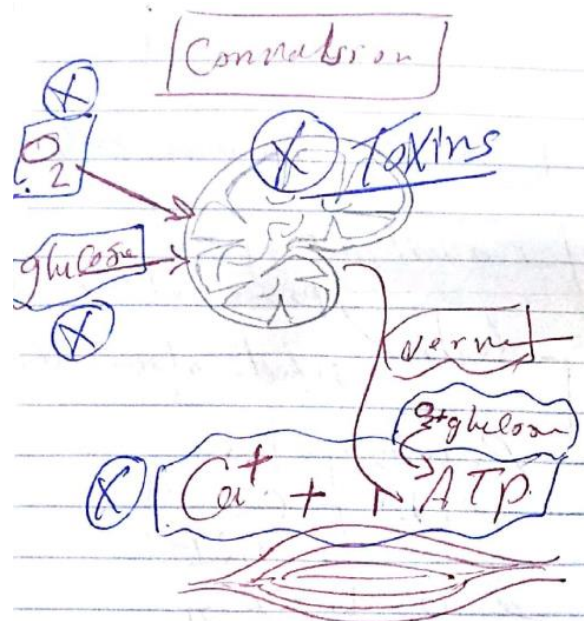 Convulsion
X
O2
X Toxins
glucose
X
nerve
O2+glucose
X Ca+ + ATP